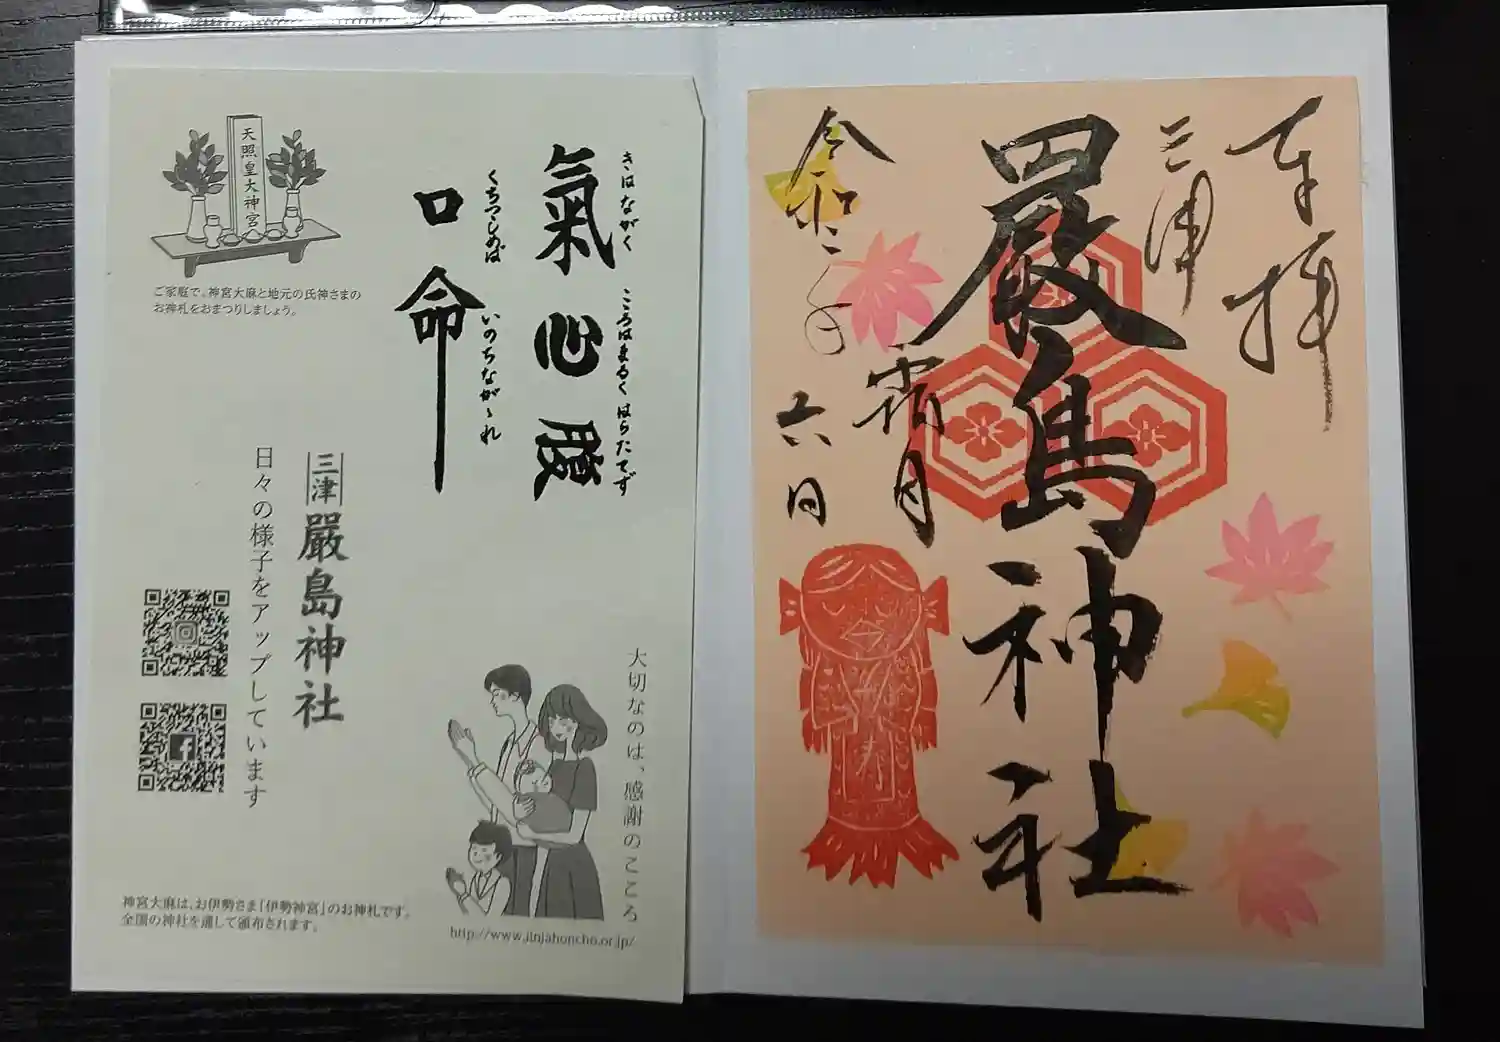 奉拝
三津
嚴島神社
令和二年
霜月
六日
寿
天照皇大神宮
ご家庭で、神宮大麻と地元の氏神さまの
お神札をおまつりしましょう。
きはながく こころはまるく はらたてず
氣心腹
くちつゝしめば いのちながゝれ
口命
三津
嚴島神社
日々の様子をアップしています
大切なのは、感謝のこころ
神宮大麻は、お伊勢さま「伊勢神宮」のお神札です。
全国の神社を通して頒布されます。
http://www.jinjahoncho.or.jp/